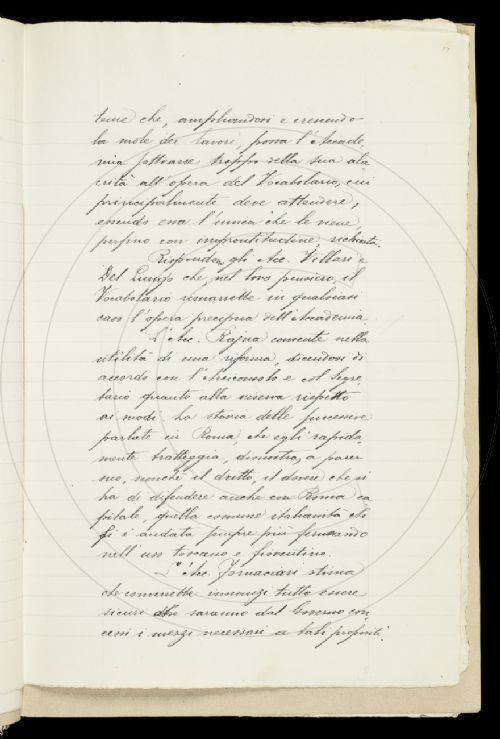 tune che, ampliandosi e crescendo
la mole dei lavori, possa l'Accade,
mia sottrarre troppo della sua ala
crità all'opera del Vocabolario, cui
principalmente deve attendere,
essendo essa l'unica che le viene,
perfino con improntitudine, richiesta.
Rispondono gli Acc. Villari e
Del Lungo che, nel loro pensiero, il
Vocabolario rimarrebbe in qualsiasi
caso l'opera precipua dell'Accademia.
L'Acc. Rajna consente nella
utilità di una riforma, dicendosi di
accordo con l'Arciconsolo e col Segre,
tario quanto alla riserva rispetto
ai modi. La storia delle
parlate in Roma, che egli rapida,
mente tratteggia, dimostra, a parer
suo, nonchè il dritto, il dovere che si
ha di difendere anche con Roma ca
pitale, quella comune italianità che
si è andata sempre più fermando
nell'uso toscano e fiorentino.
L'Acc. Fornaciari stima
che converrebbe innanzi tutto essere
sicuri che saranno dal Governo con,
cessi i mezzi necessari a tali propositi.